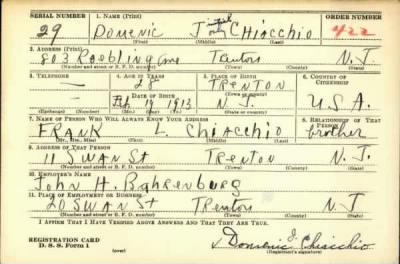 SERIAL NUMBER 1. NAME (Print) ORDER NUMBER
29 DOMENIC J initial only CHIACCHIO 422
(First) (Middle) (Last)
2. ADDRESS (Print)
803 Roebling Ave Trenton N.J.
(Number and street or R. F. D. number) (Town) (County) (State)
3. TELEPHONE 4. AGE IN YEARS 5. PLACE OF BIRTH 6. COUNTRY OF CITIZENSHIP
— 28 TRENTON
DATE OF BIRTH (Town or county)
Feb 19 1913 N.J. U.S.A.
(Exchange) (Number) (Mo.) (Day) (Yr.) (State or country)
7. NAME OF PERSON WHO WILL ALWAYS KNOW YOUR ADDRESS 8. RELATIONSHIP OF THAT PERSON
FRANK L. CHIACCHIO brother
(Mr., Mrs., Miss) (First) (Middle) (Last)
9. ADDRESS OF THAT PERSON
11 SWAN St Trenton N.J.
(Number and street or R. F. D. number) (Town) (County) (State)
10. EMPLOYER'S NAME
John H. Bahrenburg
11. PLACE OF EMPLOYMENT OR BUSINESS
20 SWAN St Trenton N.J
(Number and street or R. F. D. number) (Town) (County) (State)
I AFFIRM THAT I HAVE VERIFIED ABOVE ANSWERS AND THAT THEY ARE TRUE.
REGISTRATION CARD
D. S. S. Form 1 (over) Domenic J. Chiacchio
(Registrant's signature)